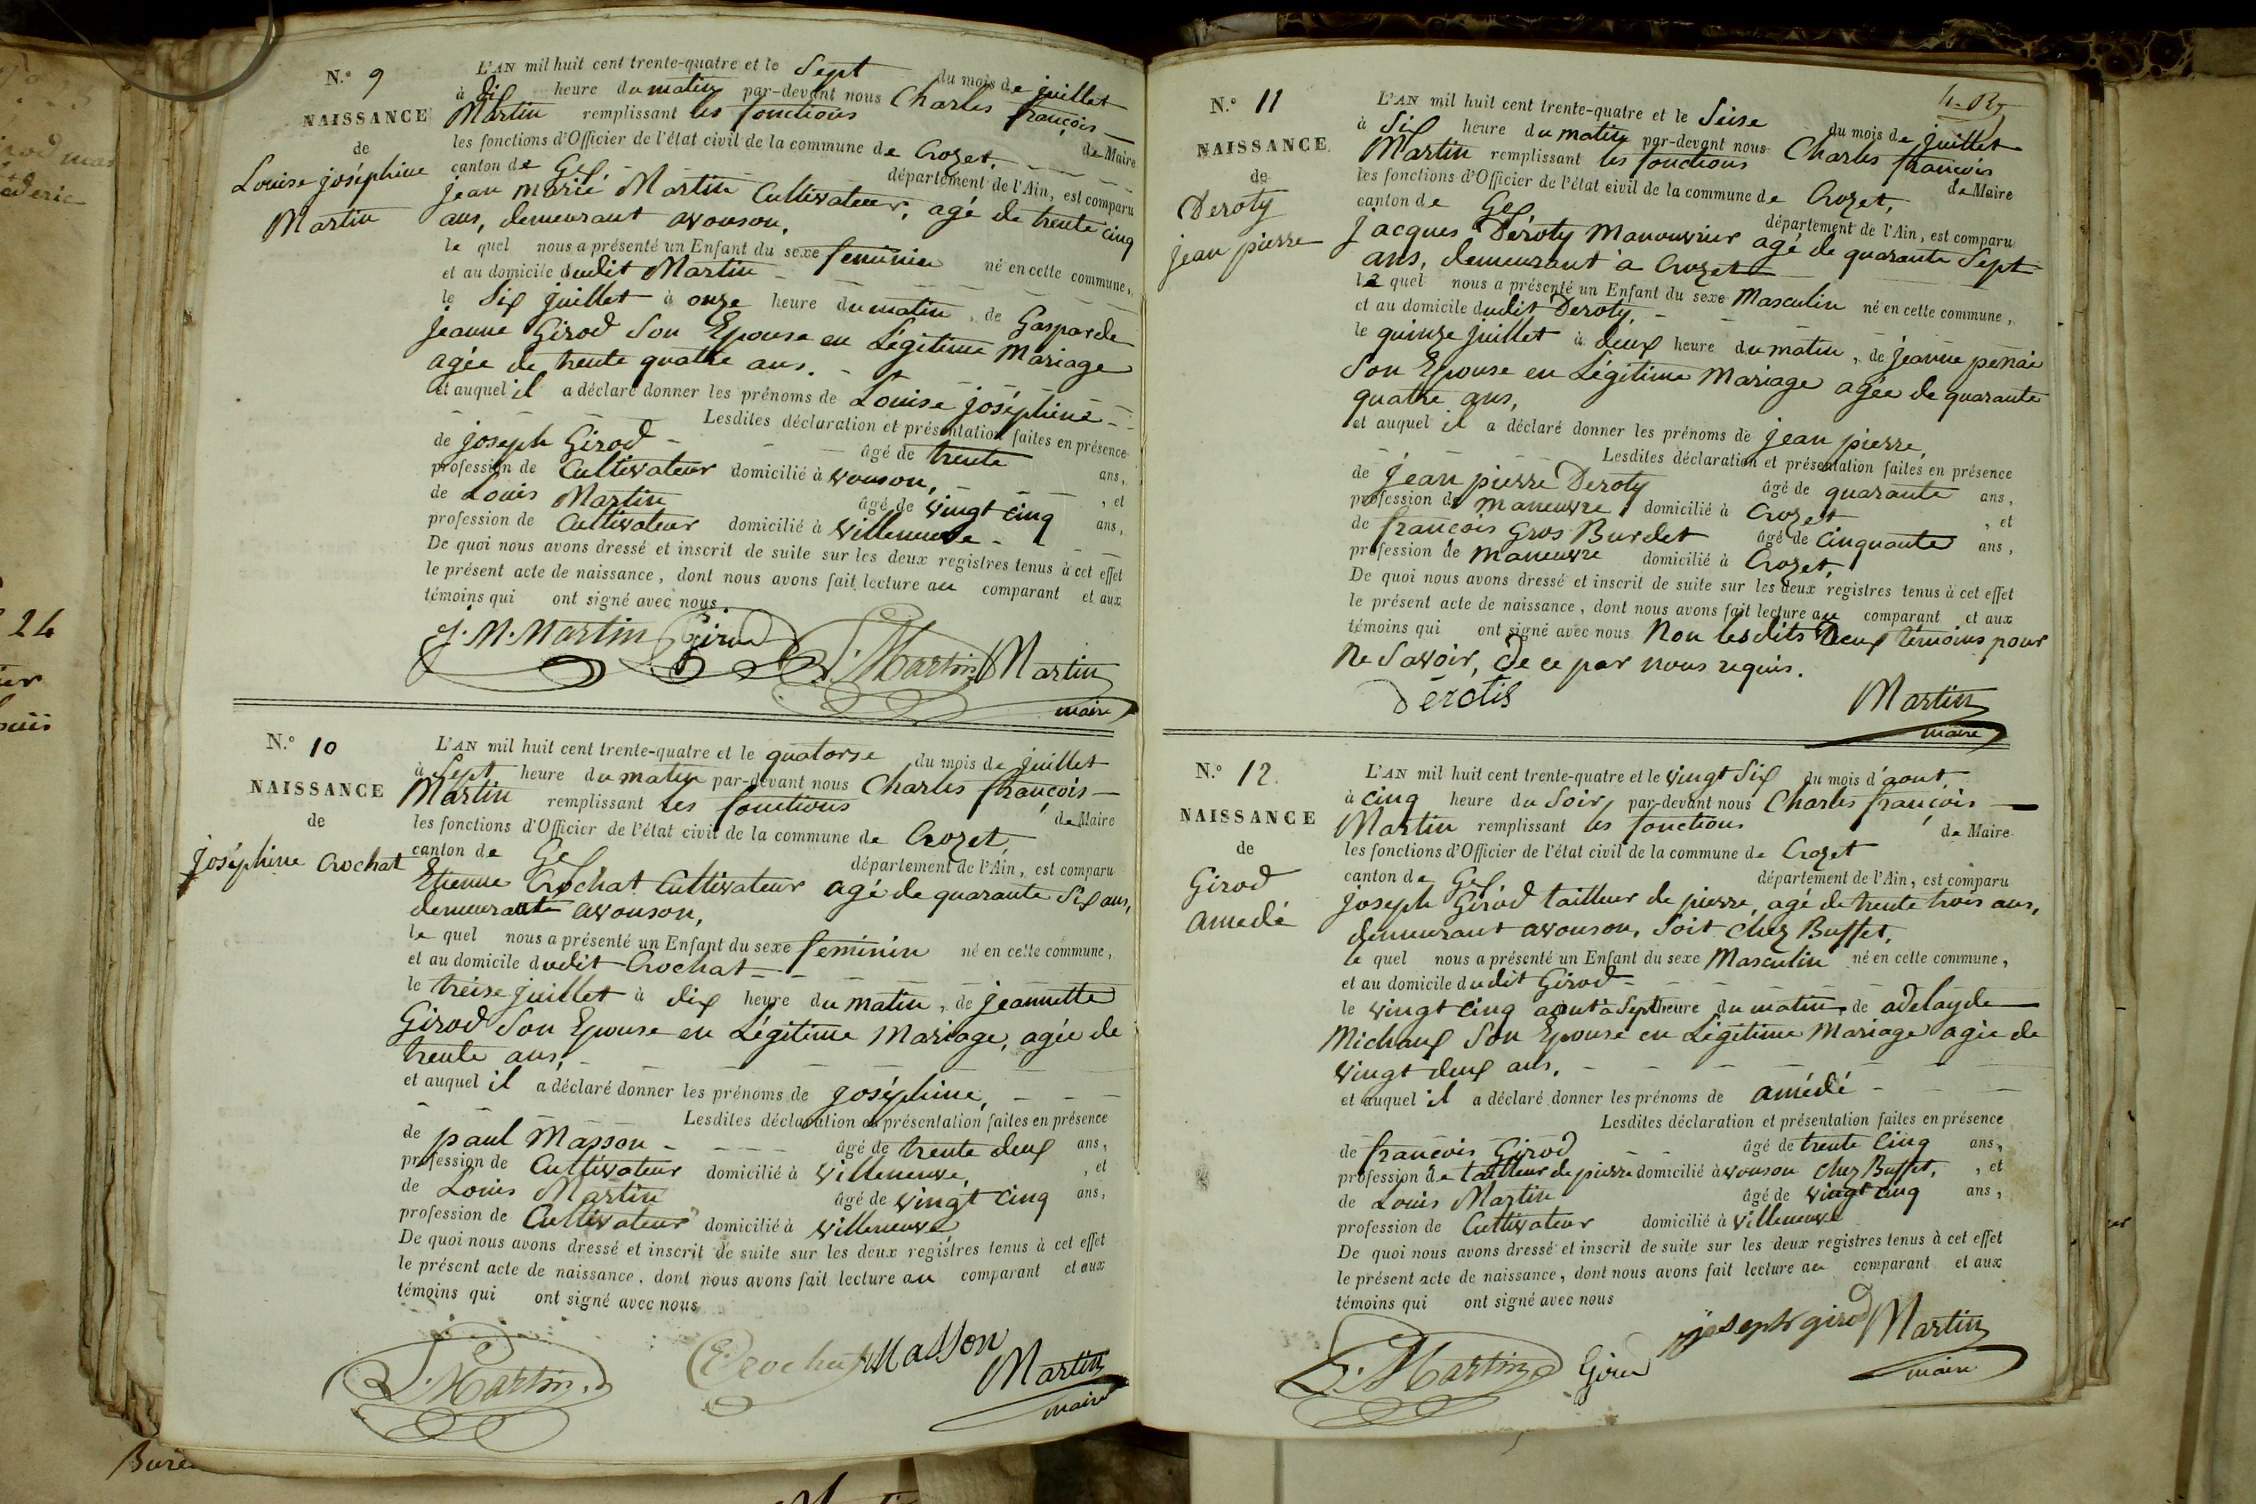 N.° 9
NAISSANCE
de
Louise joséphine
Martin
L'AN mil huit cent trente-quatre et le Sept du mois de juillet
à dix heure du matin par-devant nous Charles françois
Martin remplissant les fonctions de Maire
les fonctions d'Officier de l'état civil de la commune de Crozet,
canton de Gex département de l'Ain, est comparu
jean marie Martin Cultivateur, agé de trente cinq
ans, demeurant avouson,
le quel nous a présenté un Enfant du sexe feminin né en cette commune,
et au domicile dudit Martin
le Six juillet à onze heure du matin, de Gasparde
jeanne Girod Son Epouse en Légitime Mariage
agée de trente quatre ans.
et auquel il a déclaré donner les prénoms de Louise joséphine
Lesdites déclaration et présentation faites en présence
de joseph Girod âgé de trente ans,
profession de Cultivateur domicilié à vouson, , et
de Louis Martin âgé de vingt cinq ans,
profession de Cultivateur domicilié à villeneuve
De quoi nous avons dressé et inscrit de suite sur les deux registres tenus à cet effet
le présent acte de naissance, dont nous avons fait lecture au comparant et aux
témoins qui ont signé avec nous.
J. M. Martin Girod L. Martin Martin
maire
N.° 10
NAISSANCE
de
joséphine Crochat
L'AN mil huit cent trente-quatre et le quatorse du mois de juillet
à Sept heure du matin par-devant nous Charles françois
Martin remplissant les fonctions de Maire
les fonctions d'Officier de l'état civil de la commune de Crozet,
canton de Gex département de l'Ain, est comparu
Etienne Crochat Cultivateur agé de quarante Six ans,
demeurante avouson,
le quel nous a présenté un Enfant du sexe feminin né en cette commune,
et au domicile dudit Crochat
le treise juillet à dix heure du matin, de jeannette
Girod Son Epouse en Légitime Mariage, agée de
trente ans,
et auquel il a déclaré donner les prénoms de joséphine,
Lesdites déclaration et présentation faites en présence
de paul Masson âgé de trente deux ans,
profession de Cultivateur domicilié à villeneuve, , et
de Louis Martin âgé de vingt cinq ans,
profession de Cultivateur domicilié à villeneuve
De quoi nous avons dressé et inscrit de suite sur les deux registres tenus à cet effet
le présent acte de naissance, dont nous avons fait lecture au comparant et aux
témoins qui ont signé avec nous
L. Martin E Crochat Masson Martin
maire
N.° 11
NAISSANCE
de
Deroty
jean pierre
L'AN mil huit cent trente-quatre et le Seise du mois de juillet
à Six heure du matin par-devant nous Charles françois
Martin remplissant les fonctions de Maire
les fonctions d'Officier de l'état civil de la commune de Crozet,
canton de Gex département de l'Ain, est comparu
jacques Déroty Manouvrier agé de quarante Sept
ans, demeurant a Crozet
le quel nous a présenté un Enfant du sexe Masculin né en cette commune,
et au domicile dudit Deroty,
le quinze juillet à deux heure du matin, de jeanne
Son Epouse en Légitime Mariage agée de quarante
quatre ans,
et auquel il a déclaré donner les prénoms de jean pierre,
Lesdites déclaration et présentation faites en présence
de jean pierre Deroty âgé de quarante ans,
profession de maneuvre domicilié à Crozet , et
de françois Gros Burdet âgé de cinquante ans,
profession de maneuvre domicilié à Crozet,
De quoi nous avons dressé et inscrit de suite sur les deux registres tenus à cet effet
le présent acte de naissance, dont nous avons fait lecture au comparant et aux
témoins qui ont signé avec nous Non lesdits deux témoins pour
Ne Savoir, de ce par nous requis.
Dérotis Martin
maire
N.° 12.
NAISSANCE
de
Girod
amedé
L'AN mil huit cent trente-quatre et le vingt Six du mois d'aout
à cinq heure du Soir, par-devant nous Charles françois
Martin remplissant les fonctions de Maire
les fonctions d'Officier de l'état civil de la commune de Crozet
canton de Gex département de l'Ain, est comparu
joseph Girod tailleur de pierre, agé de trente trois ans,
demeurant avouson, Soit chez Buffet,
le quel nous a présenté un Enfant du sexe Masculin né en cette commune,
et au domicile dudit Girod
le vingt cinq aout à Sept heure du matin, de adelayde
Michaux Son Epouse en Légitime Mariage agée de
vingt deux ans.
et auquel il a déclaré donner les prénoms de amédé
Lesdites déclaration et présentation faites en présence
de françois Girod âgé de trente Cinq ans,
profession de tailleur de pierre domicilié à vouson chez Buffet, , et
de Louis Martin âgé de vingt cinq ans,
profession de Cultivateur domicilié à villeneuve
De quoi nous avons dressé et inscrit de suite sur les deux registres tenus à cet effet
le présent acte de naissance, dont nous avons fait lecture au comparant et aux
témoins qui ont signé avec nous
L. Martin Girod joseph girod Martin
maire